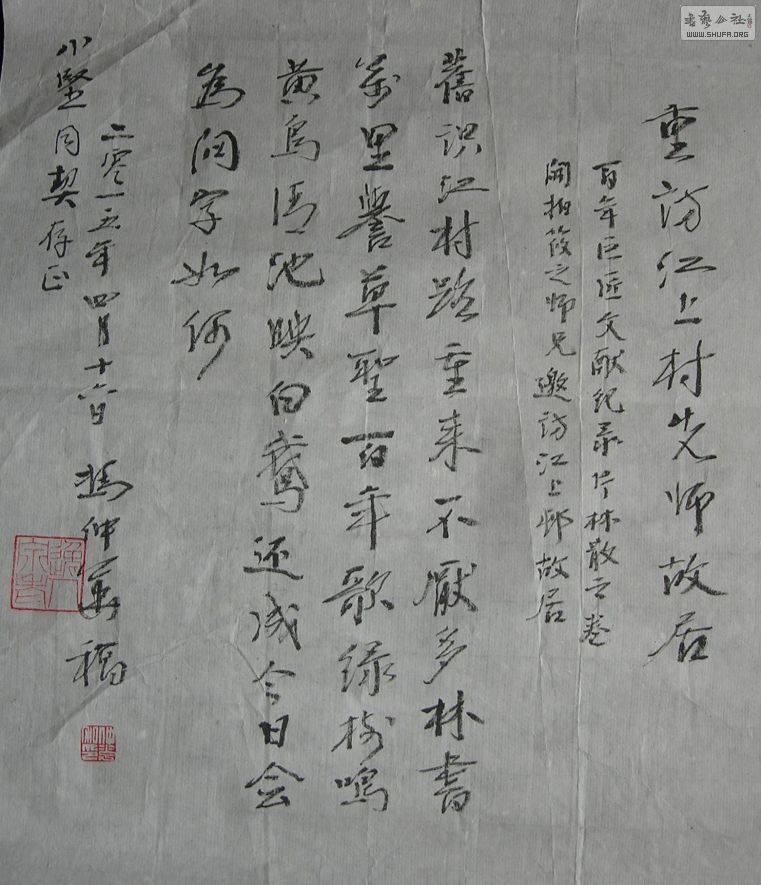 重访江上村先师故居
百年巨匠文献纪录片林散之卷
开拍筱之师兄邀访江上邨故居
舊识江村路重来不厭多林書
万里譽草聖百年歌绿树鳴
黄鸟清池映白鹅还成今日会
為问字如何
二零一五年四月十六日 冯仲华稿
小坚同契存正
书艺公社
WWW.SHUFA.ORG